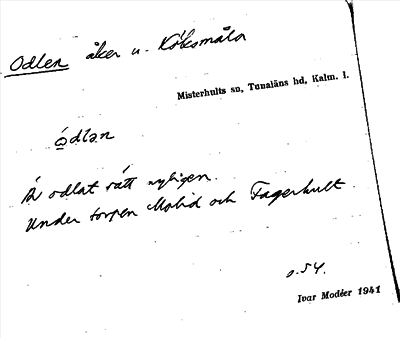 Odlen åker u. Köksmåla
Misterhults sn, Tunaläns hd, Kalm. l.
ódlən
Är odlat rätt nyligen.
Under torpen Molid och Fagerhult.
s. 54.
Ivar Modéer 1941